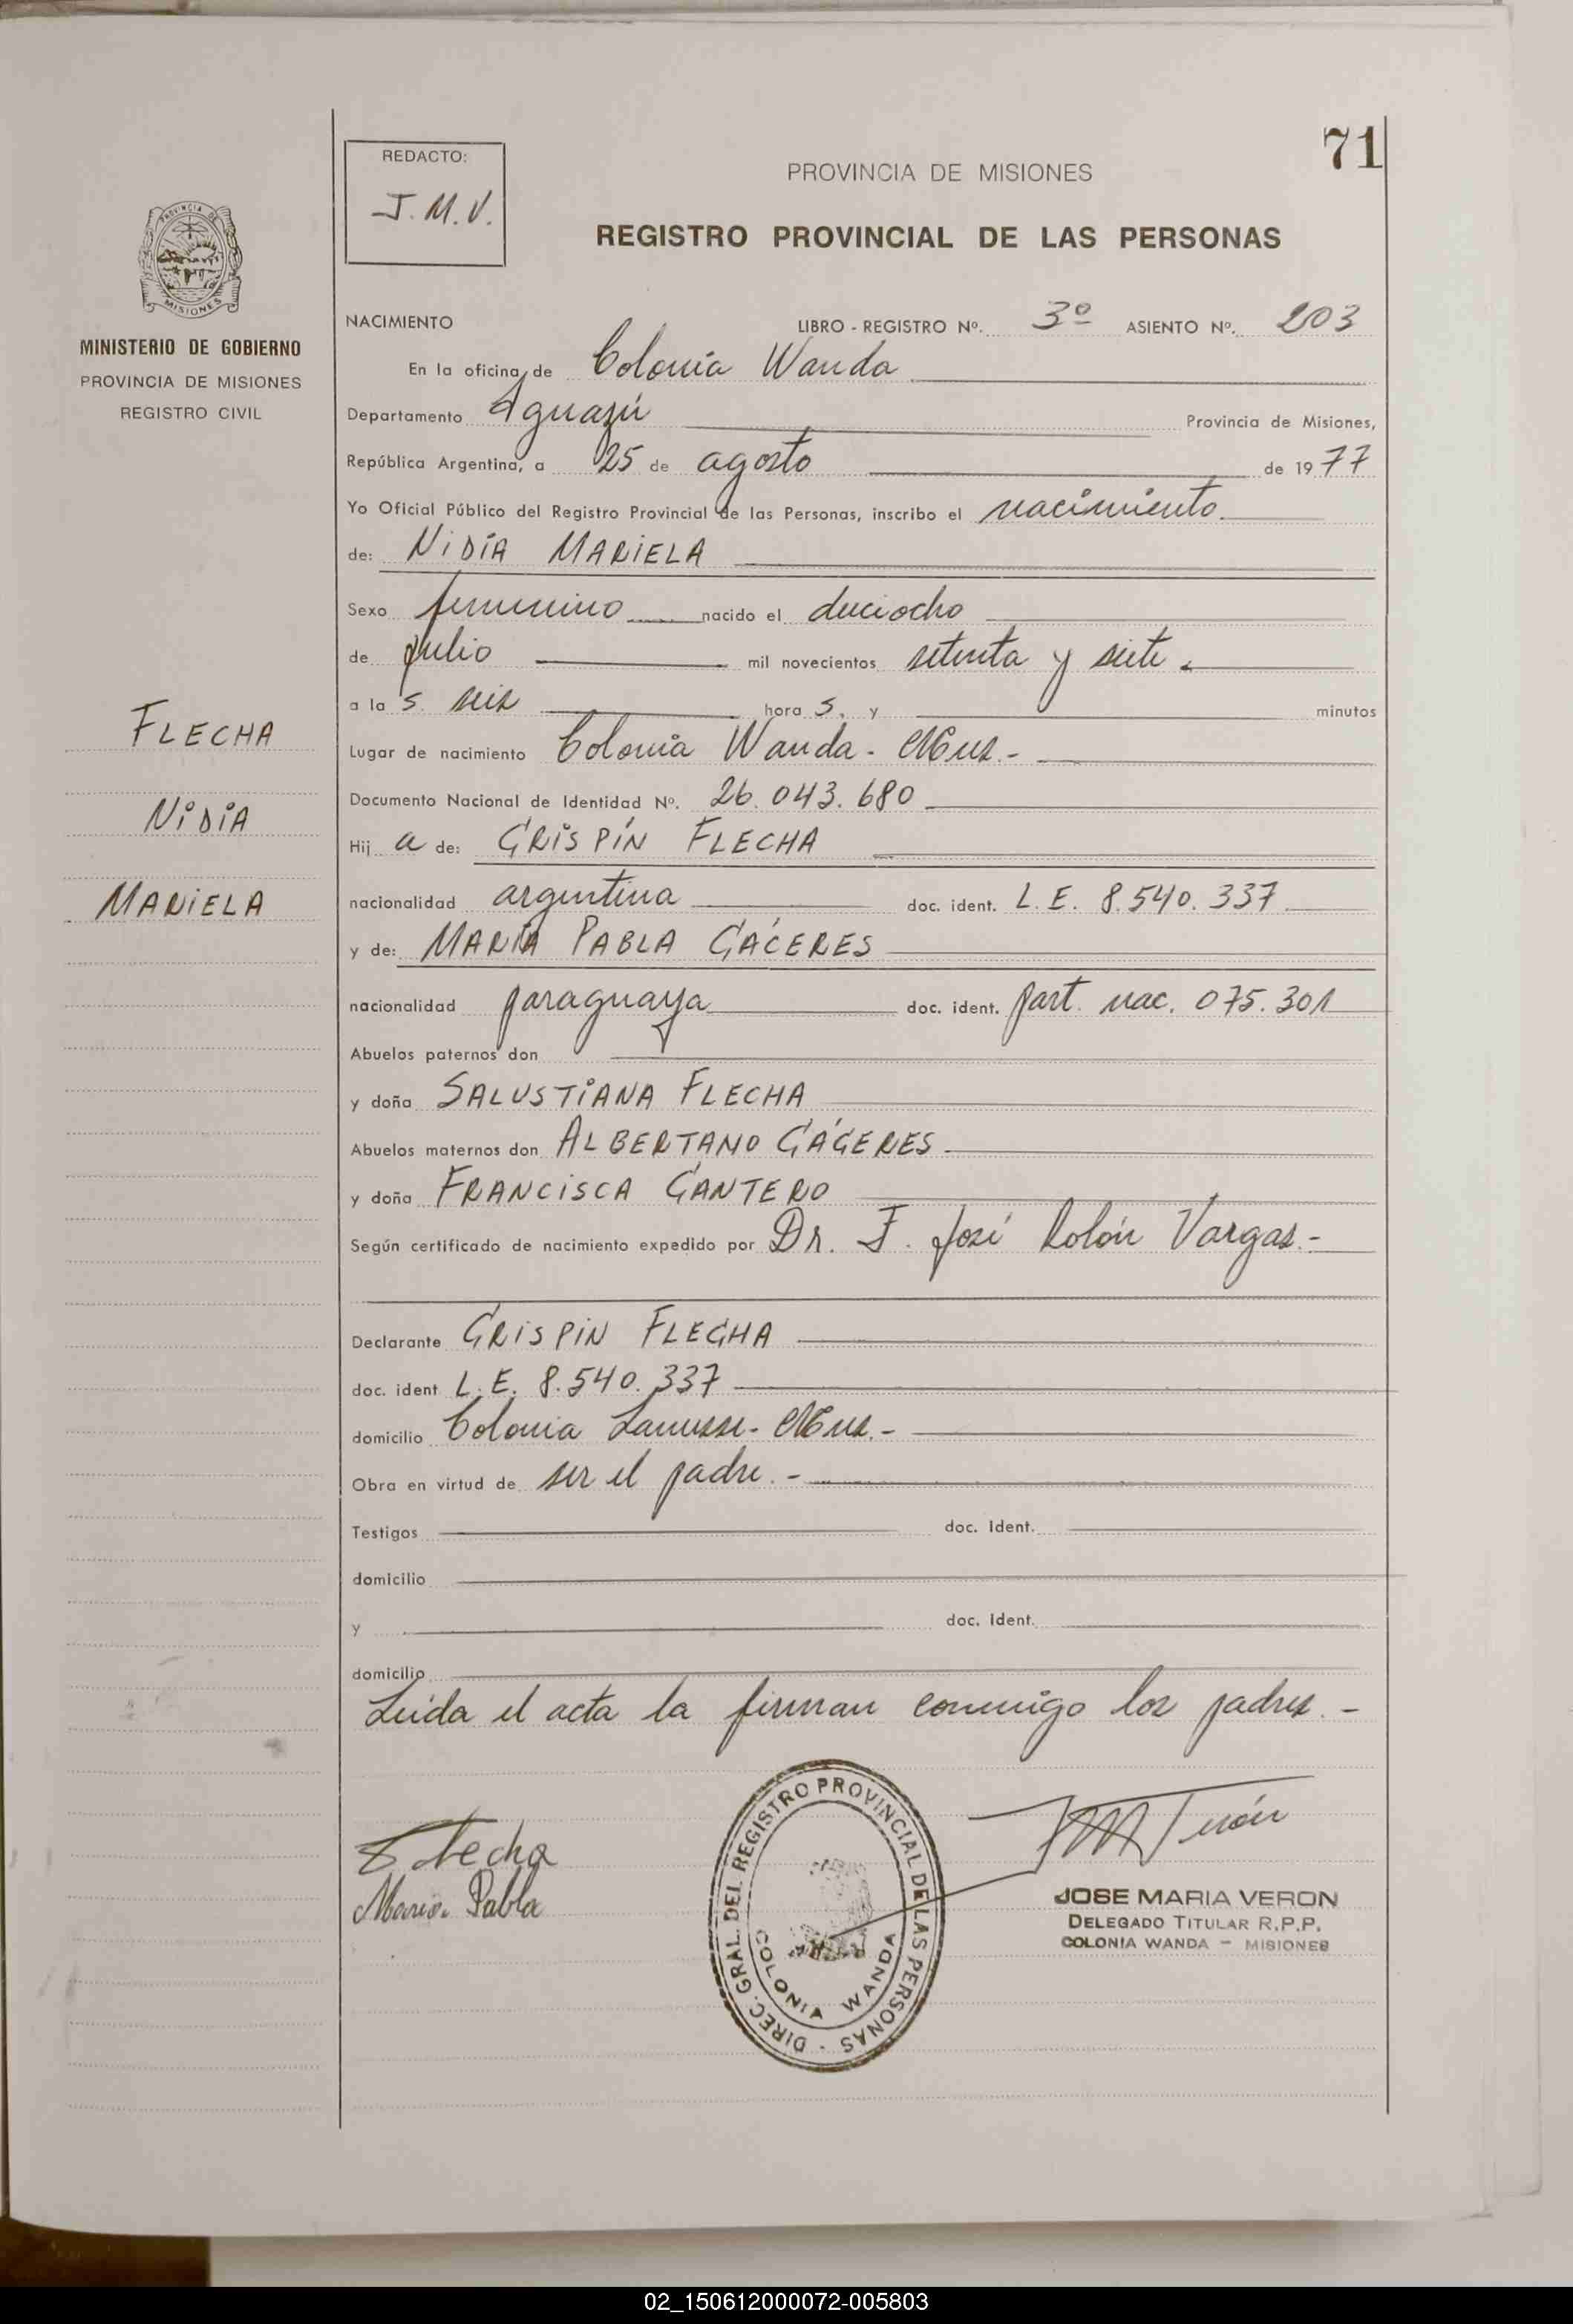 71
REDACTO:
J. M. V.
PROVINCIA DE MISIONES
REGISTRO PROVINCIAL DE LAS PERSONAS
PROVINCIA DE
MISIONES
MINISTERIO DE GOBIERNO
PROVINCIA DE MISIONES
REGISTRO CIVIL
FLECHA
NIDIA
MARIELA
NACIMIENTO LIBRO - REGISTRO Nº. 3º ASIENTO Nº. 203
En la oficina de Colonia Wanda
Departamento Iguazú Provincia de Misiones,
República Argentina, a 25 de agosto de 1977
Yo Oficial Público del Registro Provincial de las Personas, inscribo el nacimiento.
de: NIDÍA MARIELA
Sexo femenino nacido el dieciocho
de julio mil novecientos setenta y siete.
a las. seis horas. y minutos
Lugar de nacimiento Colonia Wanda - Mnes.-
Documento Nacional de Identidad Nº. 26.043.680
Hija de: CRISPÍN FLECHA
nacionalidad argentina doc. ident. L.E. 8.540.337
y de: MARÍA PABLA CÁCERES
nacionalidad paraguaya doc. ident. part. nac. 075.301
Abuelos paternos don
y doña SALUSTIANA FLECHA
Abuelos maternos don ALBERTANO CÁCERES
y doña FRANCISCA CANTERO
Según certificado de nacimiento expedido por Dr. F. José Rolón Vargas.-
Declarante CRISPIN FLECHA
doc. ident L.E. 8.540.337
domicilio Colonia Lanusse - Mnes.-
Obra en virtud de ser el padre.-
Testigos doc. Ident.
domicilio
y doc. Ident.
domicilio
Leída el acta la firman conmigo los padres.-
Flecha
Maria Pabla
DIREC. GRAL. DEL REGISTRO PROVINCIAL DE LAS PERSONAS
COLONIA WANDA
JOSE MARIA VERON
DELEGADO TITULAR R.P.P.
COLONIA WANDA - MISIONES
02_150612000072-005803